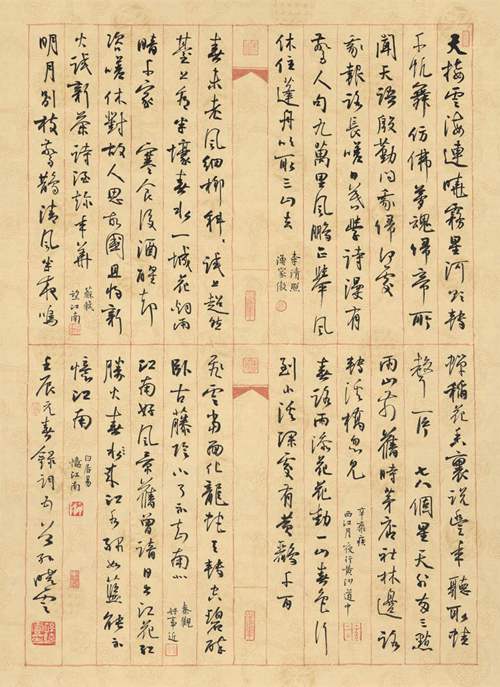 天接雲濤連曉霧星河欲轉
千帆舞仿佛夢魂歸帝所
聞天語殷勤問我歸何處
我報路長嗟日暮學詩漫有
驚人句九萬里風鵬正舉風
休住蓬舟吹取三山去
李清照
漁家傲
春未老風細柳斜斜試上超然
臺上看半壕春水一城花煙雨
暗千家 寒食後酒醒卻
咨嗟休對故人思故國且將新
火試新茶詩酒趁年華
蘇軾
望江南
明月別枝驚鵲清風半夜鳴
蟬稻花香裏說豐年聽取蛙
聲一片 七八個星天外兩三點
雨山前舊時茅店社林邊路
轉溪橋忽見
辛棄疾
西江月 夜行黃沙道中
春路雨添花花動一山春色行
到小溪深處有黃鸝千百
飛雲當面化龍蛇夭轉空碧醉
臥古藤陰下了不知南北
秦觀
好事近
江南好風景舊曾諳日出江花紅
勝火春來江水綠如藍能不
憶江南
白居易
憶江南
壬辰元春錄詞